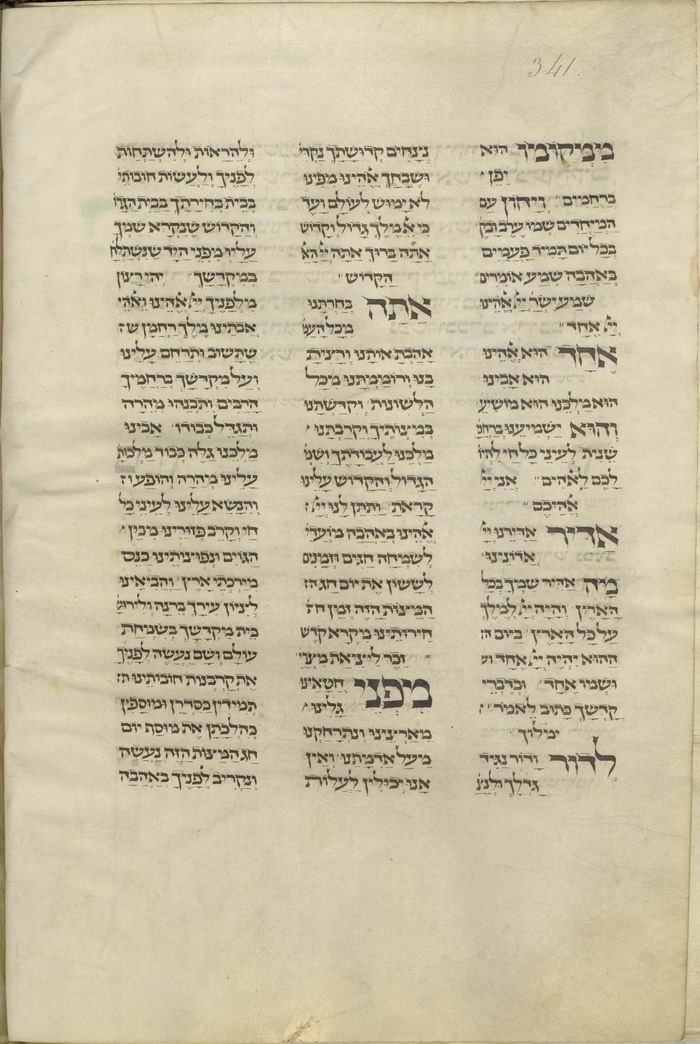 341.
ממקומו הוא
יפן
ברחמים ויחון עם
המייחדים שמו ערב ובק
בכל יום תמיד פעמים
באהבה שמע אומרים
שמע ישר ייי אהינו
ייי אחד
אחד הוא אהינו
הוא אבינו
הוא מלכנו הוא מושיע
והוא ישמיענו ברחמ
שנית לעיני כל חי להיו
לכם לאהים אני ייי
אהיכם
אדיר אדירנו ייי
אדונינו
מה אדיר שמיך בכל
הארץ והיה ייי למלך
על כל הארץ ביום הה
ההוא יהיה ייי אחד וש
ושמו אחד ובדברי
קדשך כתוב לאמר
ימלוך
לדור ודור נגיד
גדלך ולנצ
נצחים קדושתך נקדי
ושבחך אהינו מפינו
לא ימוש לעולם ועד
כי א מלך גדול וקדוש
אתה ברוך אתה ייי הא
הקדוש
אתה בחרתנו
מכל העמ
אהבת אותנו ורצית
בנו ורוממתנו מכל
הלשונות וקדשתנו
במצותיך וקרבתנו
מלכנו לעבודתך ושמ
הגדול והקדוש עלינו
קראת ותתן לנו ייי
אהינו באהבה מועדי
לשמחה חגים וזמנים
לששון את יום חג הז
המצות הזה זמן חר
חירותינו מיקרא קדש
זכר ליציאת מצרי
מפני חטאינו
גלינו
מארצינו ונתרחקנו
מיעל אדמתנו ואין
אנו יכולין לעלות
ולהראות ולהשתחות
לפניך ולעשות חובותי
בבית בחירתך בבית הגדו
והקדוש שנקרא שמך
עליו מפני היד שנשתלח
במקדשך יהי רצון
מלפניך ייי אהינו ואהי
אבתינו מלך רחמן שת
שתשוב ותרחם עלינו
ועל מקדשך ברחמיך
הרבים ותבנהו מהרה
ותגדל כבודו אבינו
מלכנו גלה כבוד מלכות
עלינו מהרה והופע וה
והנשא עלינו לעיני כל
חי וקרב פזורינו מבין
הגוים ונפוצותינו כנס
מירכתי ארץ והביאינו
לציון עירך ברנה ולירוש
בית מקדשך בשמחת
עולם ושם נעשה לפניך
את קרבנות חובותינו ת
תמידין כסדרן ומוספין
כהלכתן את מוסף יום
חג המצות הזה נעשה
ונקריב לפניך באהבה